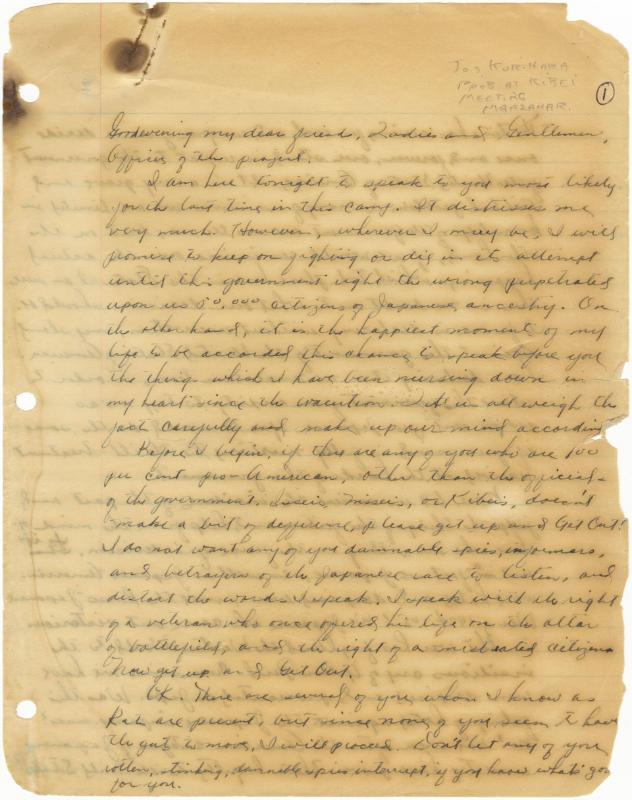 Jos Kurihara
Prob at Kibei
Meeting
Manzanar.
1
Goodevening my dear friend, Ladies and Gentlemen,
Officers of the project.
I am here tonight to speak to you most likely
for the last time in this camp. It distresses me
very much. However, wherever I may be, I will
promise to keep on fighting or die in its attempt
until this government right the wrong perpetrated
upon us 80,000 citizens of Japanese ancestry. On
the other hand, it is the happiest moment of my
life to be accorded this chance to speak before you
the things which I have been nursing down in
my heart since the evacuation. Let us all weigh the
fact carefully and make up our mind according
Before I begin, if there are any of you who are 100
per cent pro-American, other than the officials
of the government, Isseis, Niseis, or Kibeis, doesn't
make a bit of difference, please get up and Get Out!
I do not want any of you damnable spies, informers,
and betrayers of the Japanese race to listen, and
distort the words I speak. I speak with the right
of a veteran who once offered his life on the altar
of battlefield, and the right of a mistreated citizen
Now get up and Get Out.
OK. There are several of you whom I know as
Rats are present, but since none of you seem to have
the guts to move, I will proceed. Don't let any of you
rotten, stinking, damnable spies interrupt, if you know what's good
for you.